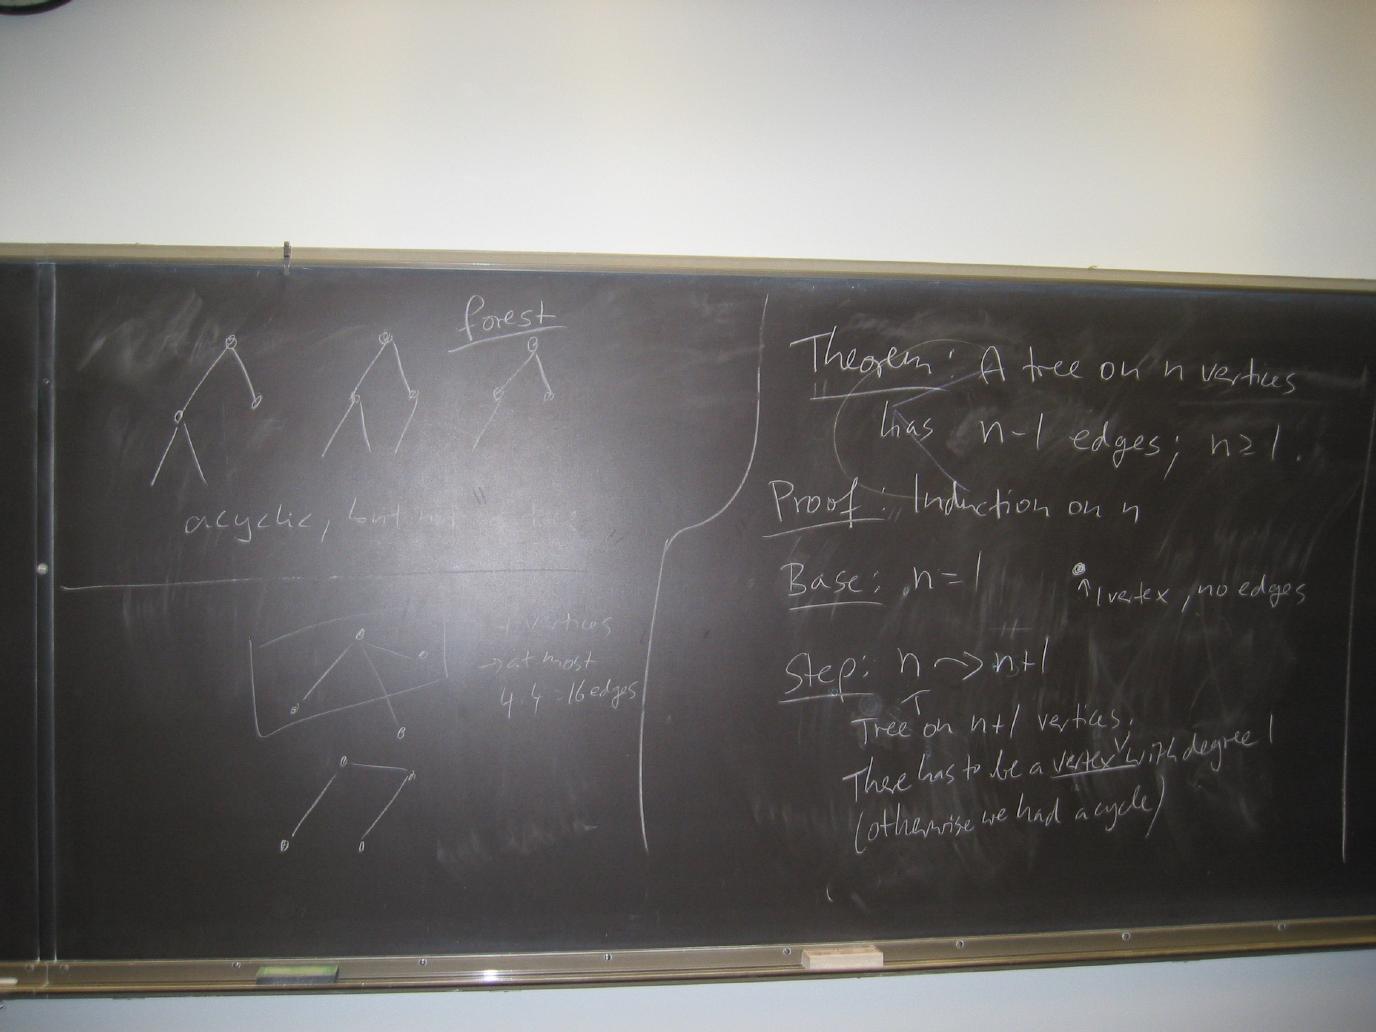 forest
acyclic, but not
vertices
→ at most
4·4=16 edges
Theorem: A tree on n vertices
has n-1 edges; n≥1.
Proof: Induction on n
Base: n=1
↑ 1 vertex, no edges
Step: n → n+1
Tree T on n+1 vertices.
There has to be a vertex v with degree 1
(otherwise we had a cycle)